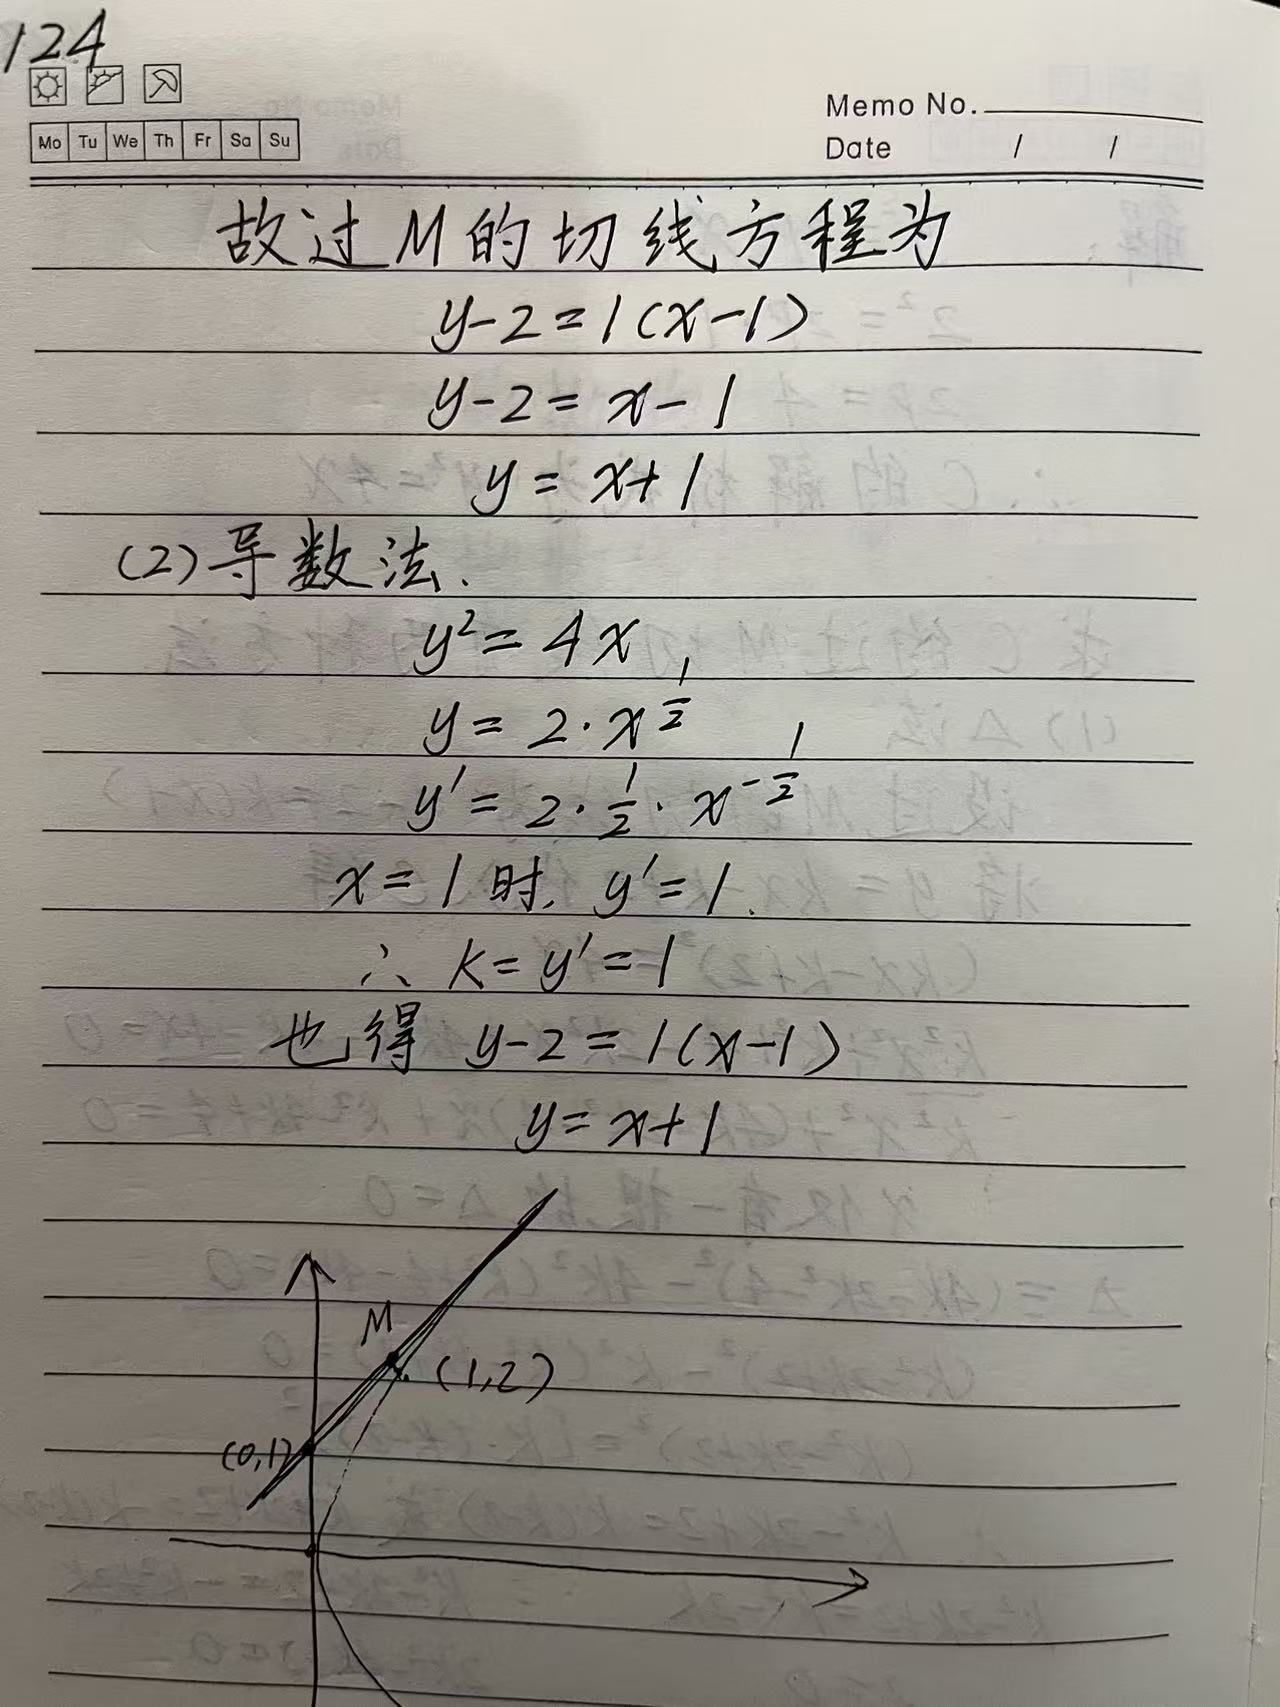 124
Memo No.
Mo Tu We Th Fr Sa Su
Date / /
故过M的切线方程为
y-2=1(x-1)
y-2=x-1
y=x+1
(2)导数法.
y²=4x
y=2·x^{1/2}
y′=2·1/2·x^{-1/2}
x=1时,y′=1.
∴k=y′=1
也得 y-2=1(x-1)
y=x+1
M
(1,2)
(0,1)